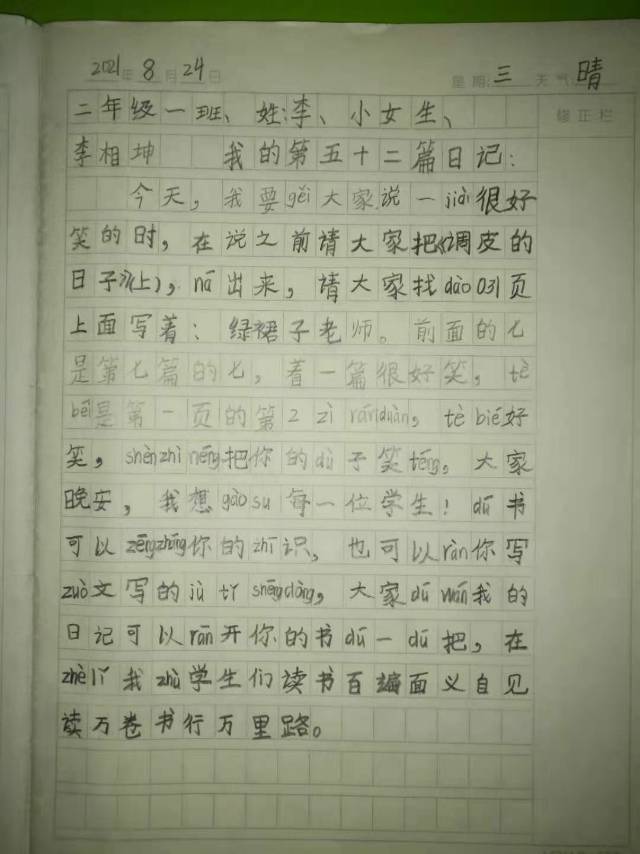 2021年8月24日 星期:三 天气 晴
修正栏
二年级一班、姓:李、小女生、
李相坤 我的第五十二篇日记:
今天,我要gěi大家说一jiàn很好
笑的时,在说之前请大家把《调皮的
日子》(上),ná出来,请大家找dào031页
上面写着:绿裙子老师。前面的七
是第七篇的七,着一篇很好笑,tè
bié是第一页的第2 zì rán duàn,tè bié好
笑,shènzhì néng把你的dù子笑téng。大家
晚安,我想gào su每一位学生!dū书
可以zēngzhāng你的zhī识,也可以ràn你写
zuò文写的jù tǐ shēngdòng,大家dū wán我的
日记可以rān开你的书dū一dū把,在
zhè lǐ我zhù学生们读书百遍面义自见
读万卷书行万里路。